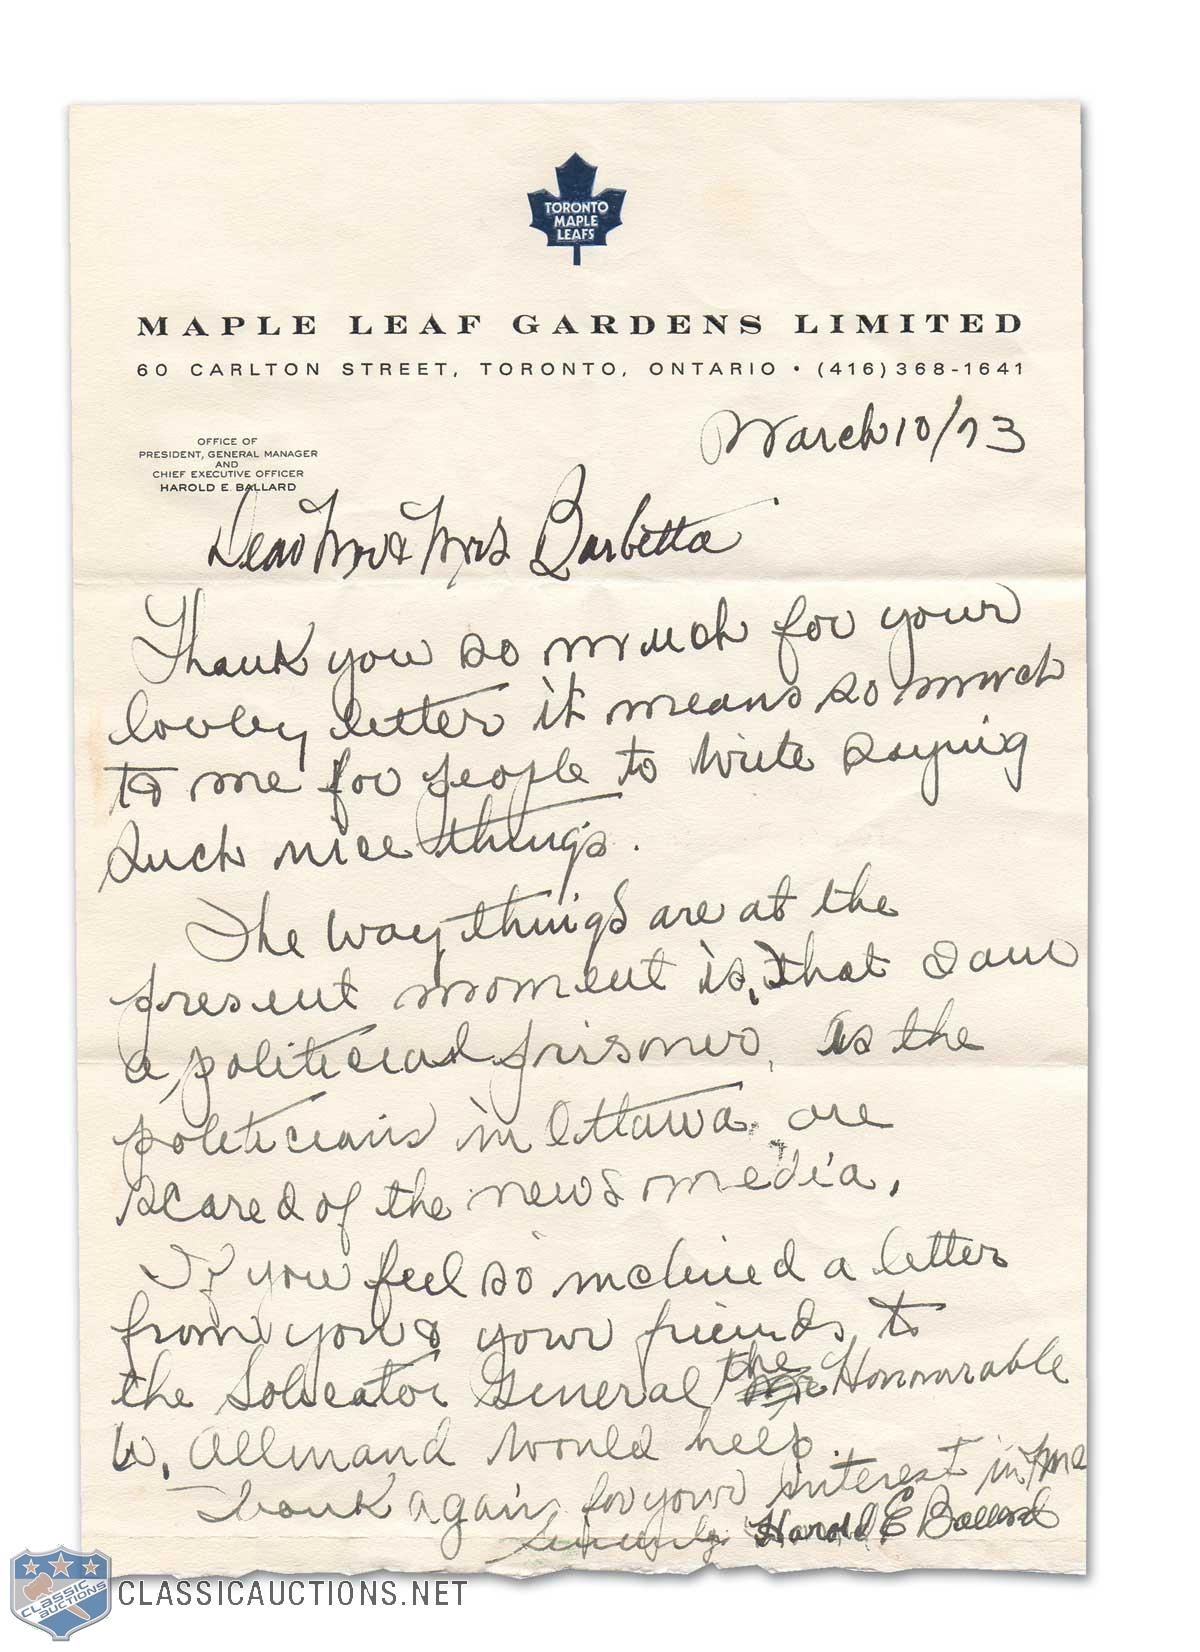 TORONTO
MAPLE
LEAFS
MAPLE LEAF GARDENS LIMITED
60 CARLTON STREET, TORONTO, ONTARIO • (416) 368-1641
March 10/73
OFFICE OF
PRESIDENT, GENERAL MANAGER
AND
CHIEF EXECUTIVE OFFICER
HAROLD E. BALLARD
Dear Mr & Mrs Barbetta
Thank you so much for your
lovley letter it means so much
to me for people to write saying
such nice things.
The way things are at the
present moment is, that I am
a political prisoner, as the
politicians in Ottawa are
scared of the news media.
If you feel so inclined a letter
from you & your friends to
the Solicator General the Honourable
W. Allmand would help.
Thank again for your interest in me
Sincerely Harold E Ballard
CLASSIC
AUCTIONS
CLASSICAUCTIONS.NET